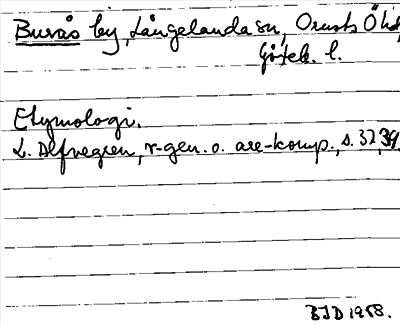 Burås by, Långelanda sn, Orusts Ö hd,
Göteb. l.
Etymologi.
L. Alfvegren, r-gen. o. are-komp., s. 37, 39.
BJD 1958.